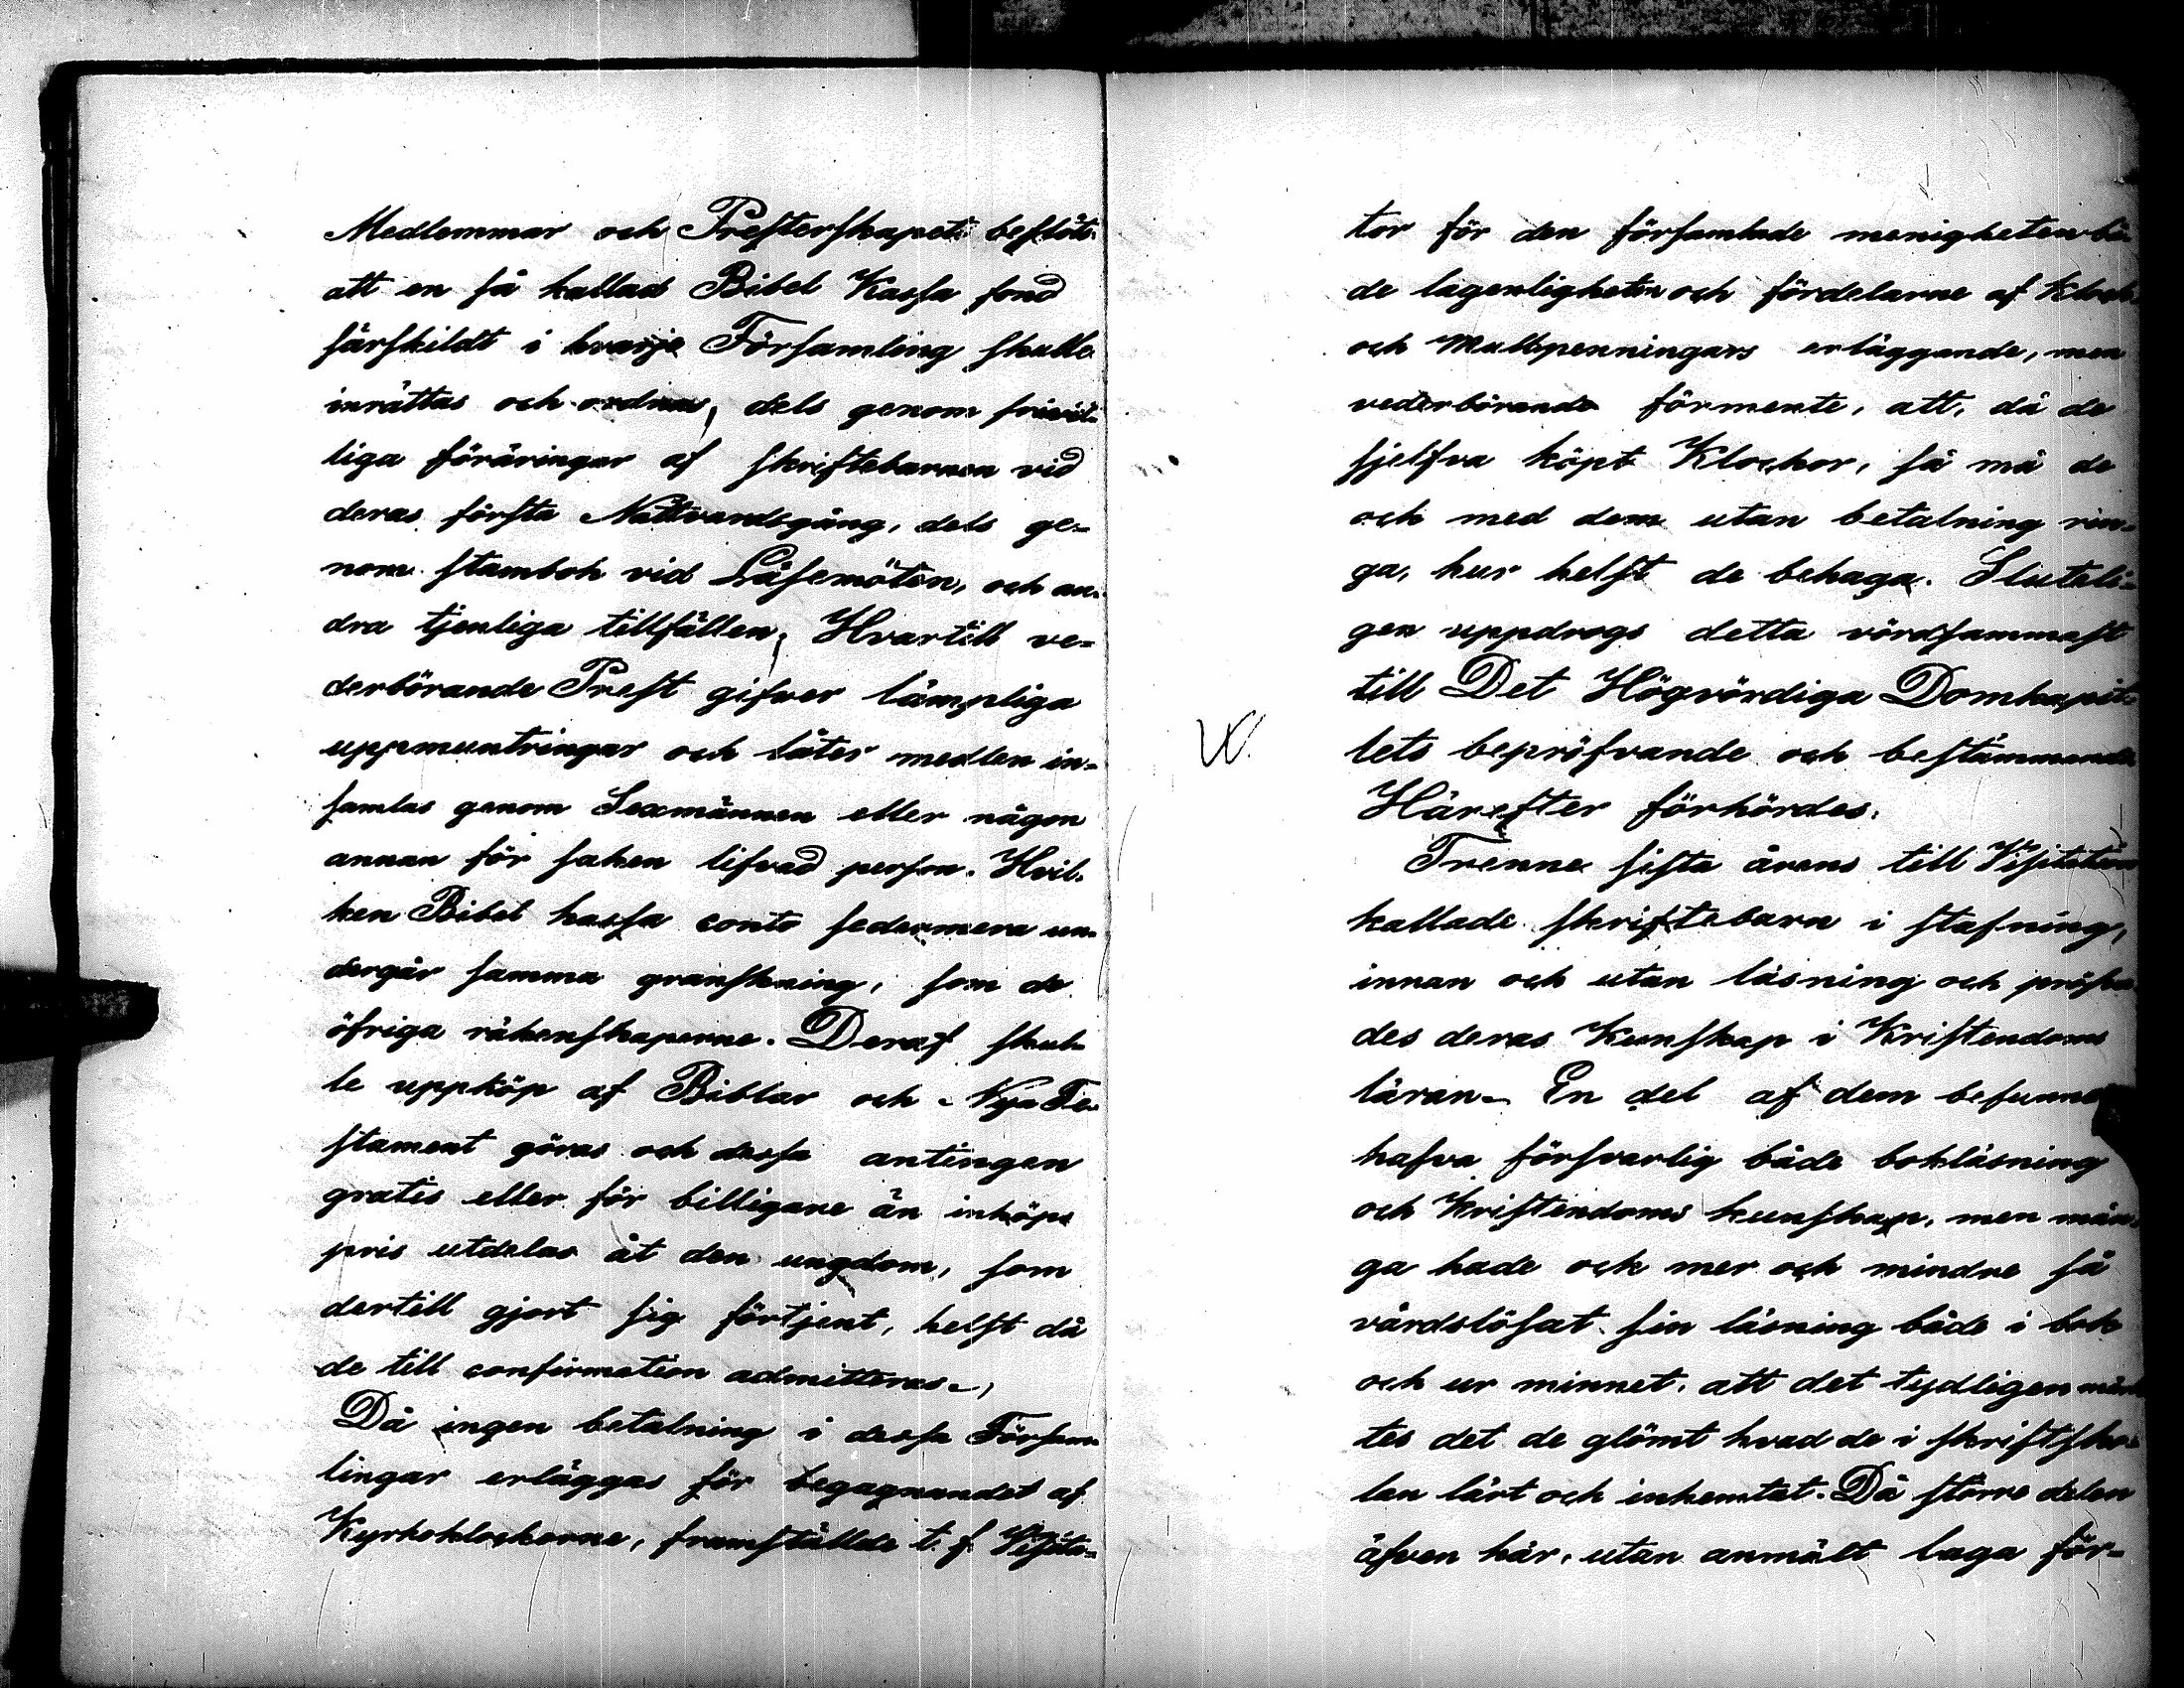 Medlemmar och Presterskapet beslöts
att en så kallad Bibel Kassa fond
särskildt i hvarje Församling skulle
inrättas och ordnas, dels genom frivil-
liga föräringar af skriftebarnen vid
deras första Nattvardsgång, dels ge-
nom stambok vid Läsemöten, och an-
dra tjenliga tillfällen, Hvartill ve-
derbörande Prest gifver lämpliga
uppmuntringar och låter medlen in-
samlas genom Sexmännen eller någon
annan för saken lifvad person. Hvil-
ken Bibel kassa conto sedermera un-
dergår samma granskning, som de
öfriga räkenskaperne. Deraf skul-
le uppköp af Biblar och Nya Te-
stament göras och dessa antingen
gratis eller för billigare än inköps
pris utdelas åt den ungdom, som
dertill gjort sig förtjent, helst då
de till confirmation admitteras.
Då ingen betalning i dessa Försam-
lingar erlägges för begagnandet af
Kyrkoklockorne, framstälde t. f. Visita-
tor för den församlade menigheten bå-
de lagenligheten och fördelarne af Klock
och Mullpenningars erläggande, men
vederbörande förmente, att, då de
sjelfva köpt Klockor, så må de
och med dem utan betalning rin-
ga, hur helst de behaga. Sluteli-
gen uppdrogs detta vördsammast
till Det Högvördiga Domkapit-
lets bepröfvande och bestämmande
Härefter förhördes.
Trenne sista årens till Visitation
kallade skriftebarn i stafning,
innan och utan läsning och pröfva-
des deras Kunskap i Kristendoms
läran. En del af dem befunnos
hafva försvarlig både bokläsning
och Kristendoms kunskap, men mån-
ga hade ock mer och mindre så
vårdslösat sin läsning både i bok
och ur minnet, att det tydligen märk
tes det de glömt hvad de i skriftsko-
lan lärt och inhemtat. Då större delen
äfven här, utan anmält laga för-